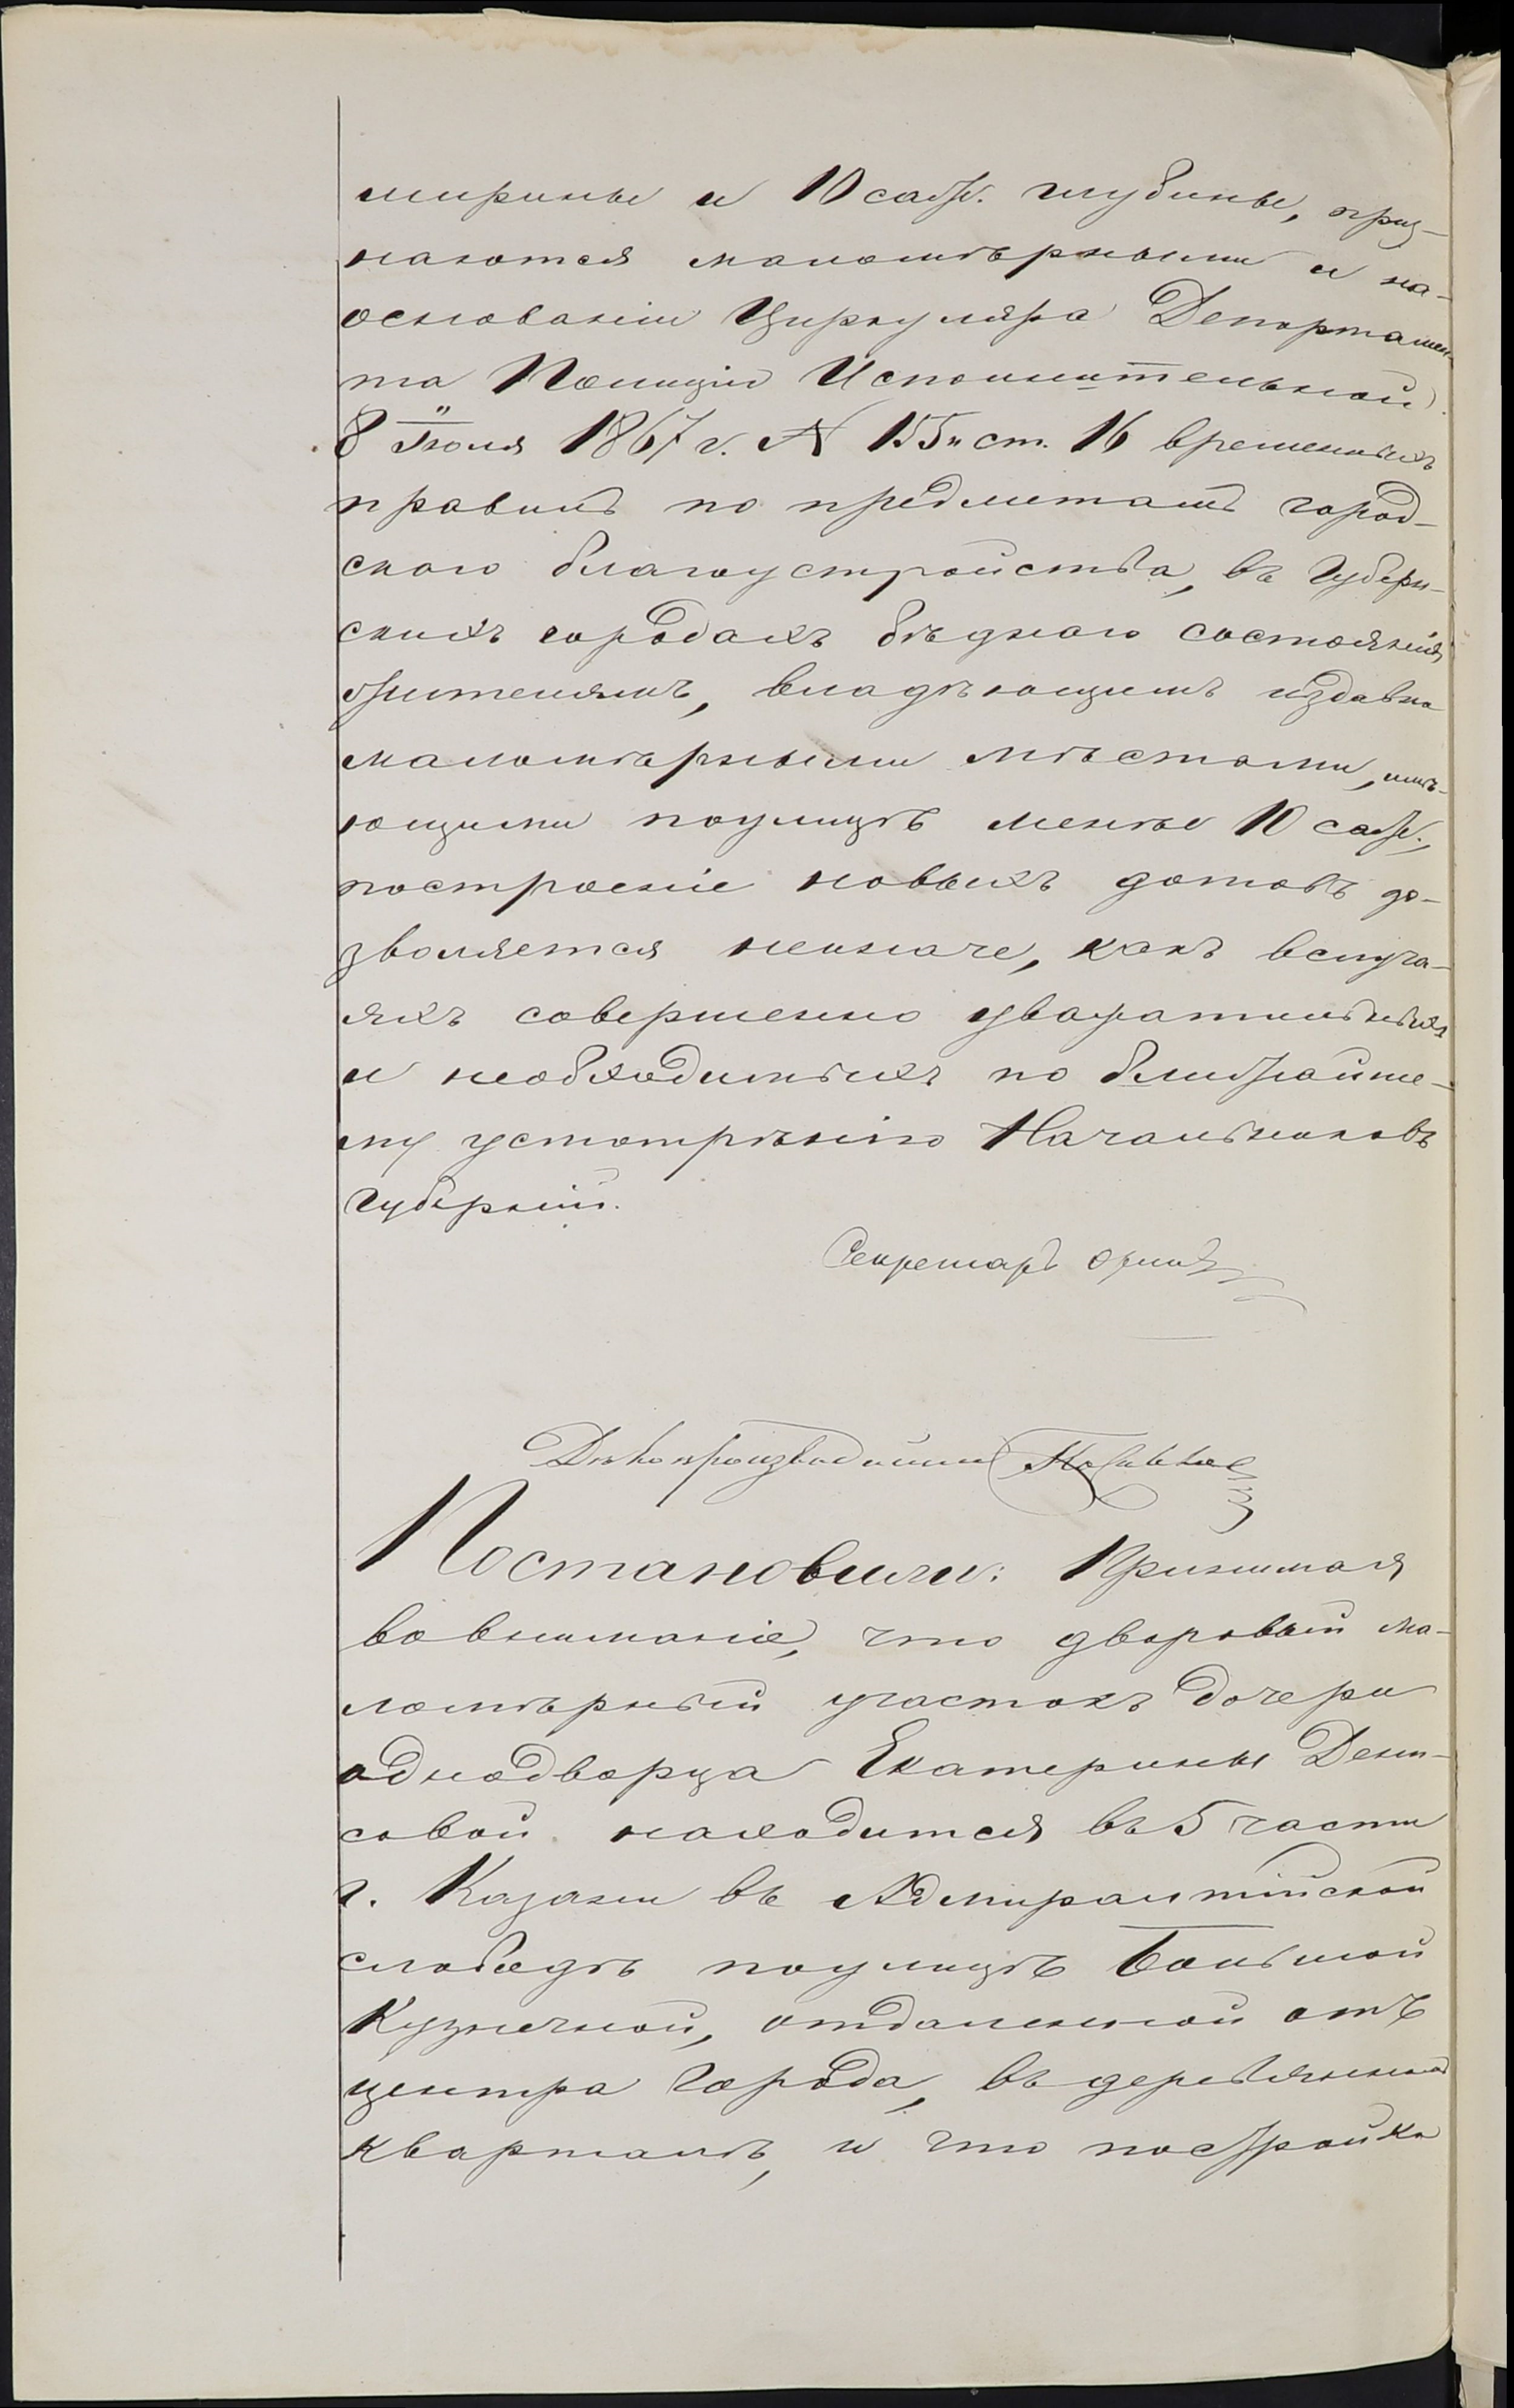 ширины и 10 саж. глубины, приз-
наются маломѣрными и на
основаніи Циркуляра Департамен-
та Полиціи Исполнительной
8 Іюля 1867 г. № 155 и ст. 16 временныхъ
правилъ по предметамъ город-
скаго благоустройства, въ Губерн-
скихъ городахъ бѣднаго состоянія
жителямъ, владѣющимъ издавна
маломѣрными мѣстами, имѣ-
ющими поулицѣ менѣе 10 саж.,
построеніе новыхъ домовъ до-
зволяется неиначе, какъ вслуча-
яхъ совершенно уважательныхъ
и необходимыхъ по ближайше-
му усмотрѣнію Начальниковъ
Губерній.
Секретарь
Дѣлопроизводитель
Постановили: Принимая
во вниманіе, что дворовый ма-
ломѣрный участокъ дочери
однодворца Екатерины Дени-
совой находится въ 5 части
г. Казани въ Адмиралтійской
слободѣ поулицѣ Большой
Кузнечной, отдаленной отъ
центра города, въ деревянномъ
кварталѣ, и что постройка